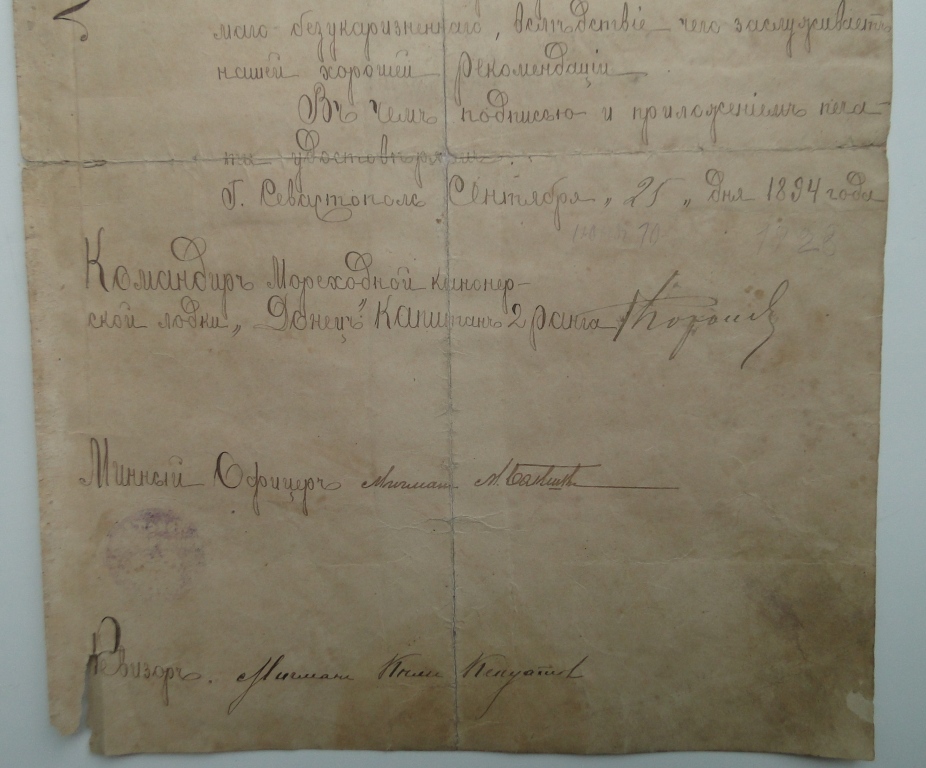 маго безукаризненнаго, вслѣдствіе чего заслуживаетъ
нашей хорошей рекомендаціи
Въ чемъ подписью и приложеніемъ печа-
ти удостовѣряемъ.
Г. Севастополь Сентября „25„ дня 1894 года
Командиръ Мореходной канонер-
ской лодки „Донецъ" Капитанъ 2 ранга
Минный Офицеръ Мичманъ
Ревизоръ. Мичманъ Князь